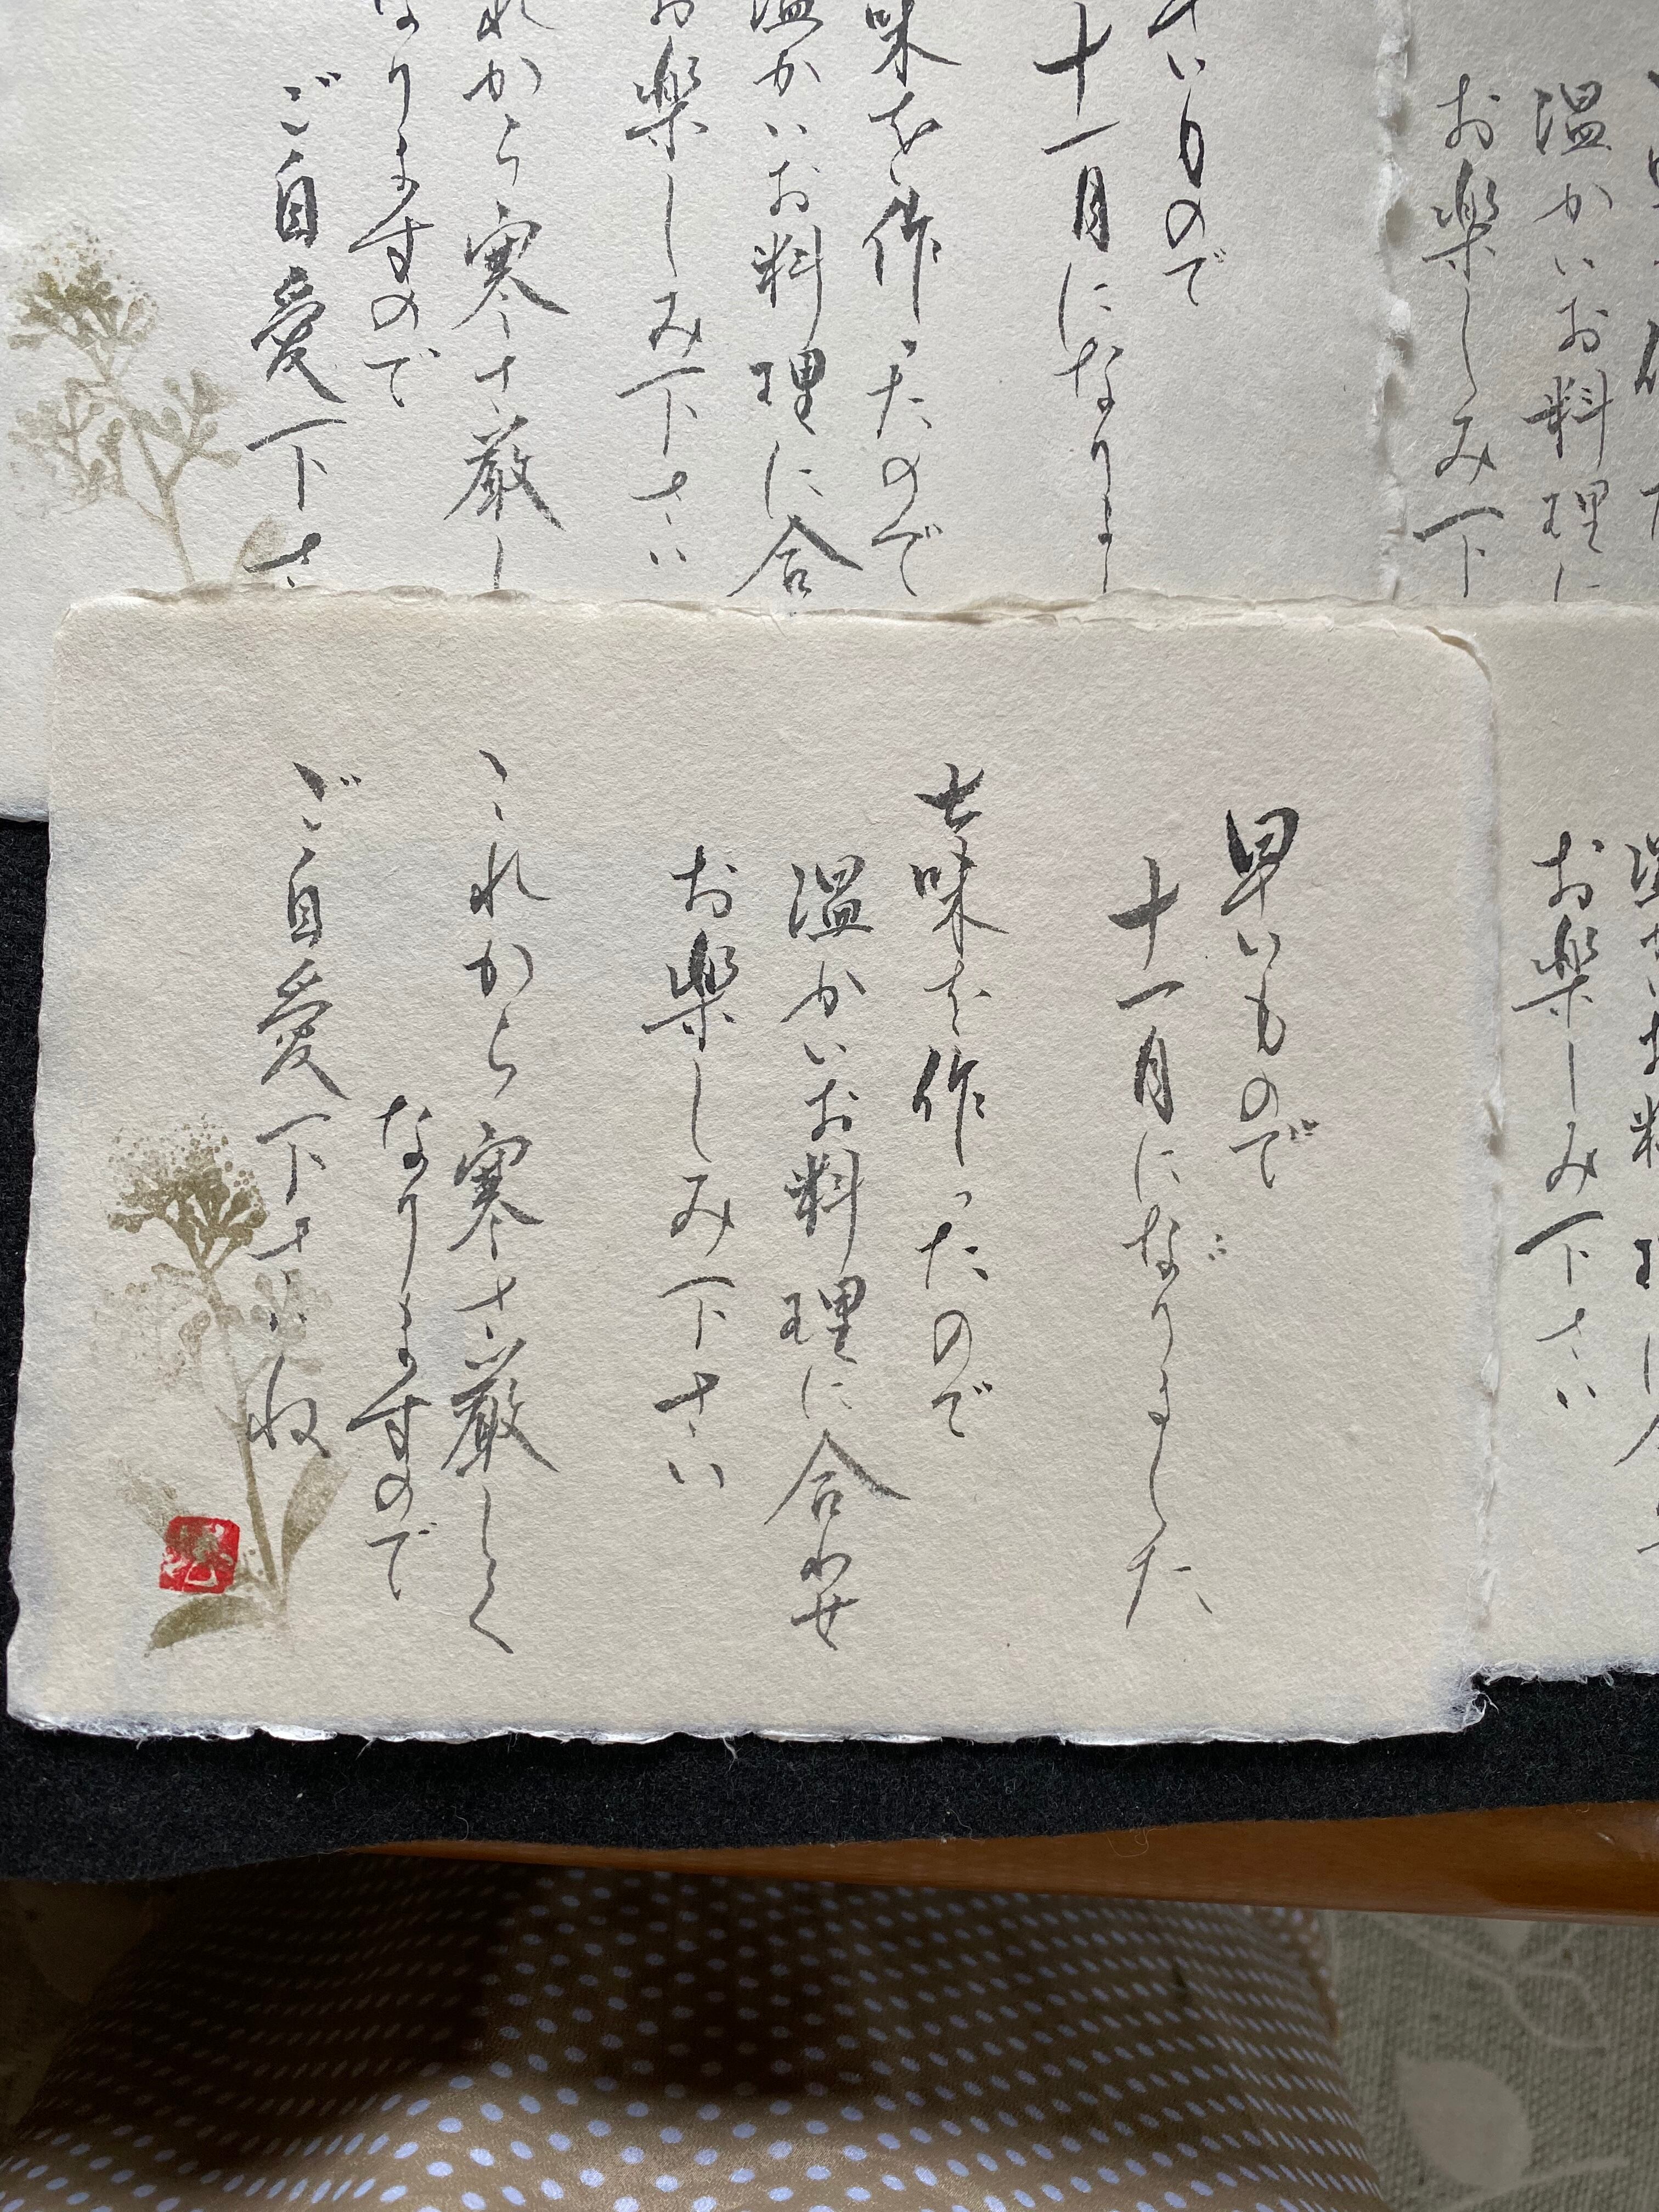 温かいお料理に
お楽しみ下
いもので
十一月になりま
味を作ったので
温かいお料理に合
お楽しみ下さい
れから寒さ厳し
なりますので
ご自愛下さ
お楽しみ下さい
早いもので
十一月になりました
七味を作ったので
温かいお料理に合わせ
お楽しみ下さい
これから寒さ厳しく
なりますので
ご自愛下さいね